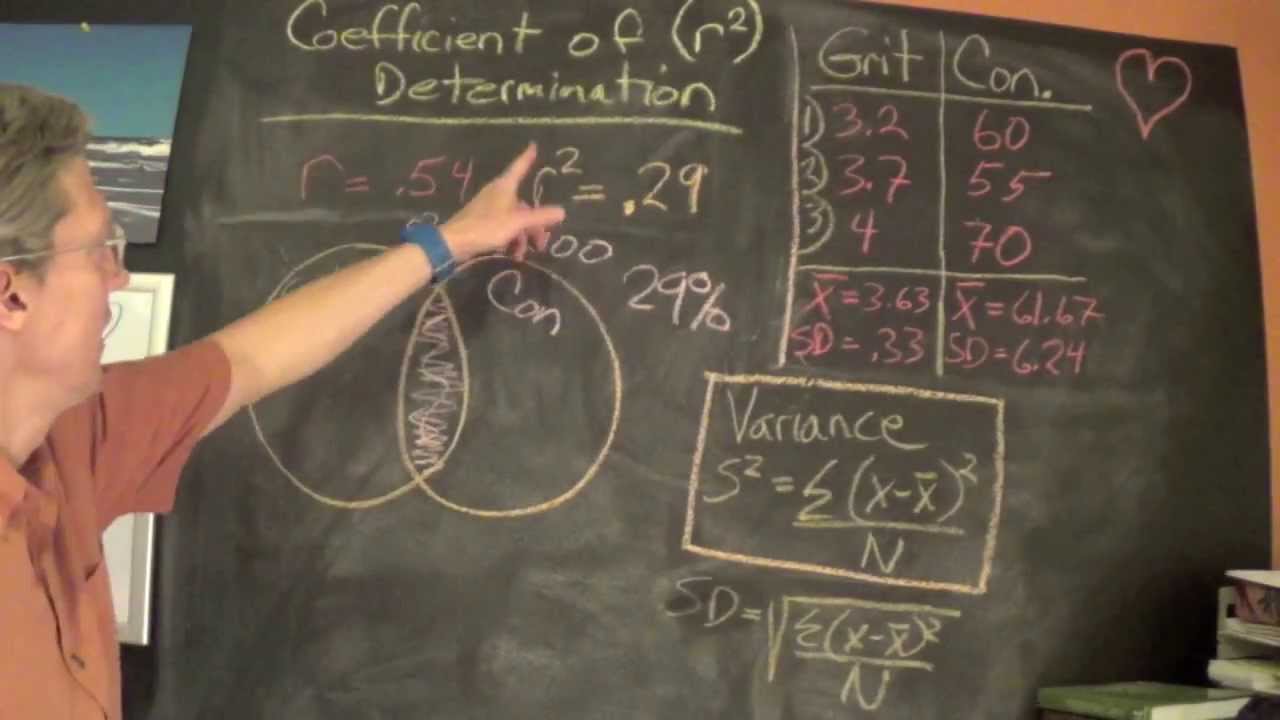 Coefficient of (r²)
Determination
r = .54 r² = .29
100
Con
29%
Grit Con.
1) 3.2 60
2) 3.7 55
3) 4 70
X̄ = 3.63 X̄ = 61.67
SD = .33 SD = 6.24
Variance
S² = Σ(x-x̄)²
N
SD = √Σ(x-x̄)²
N